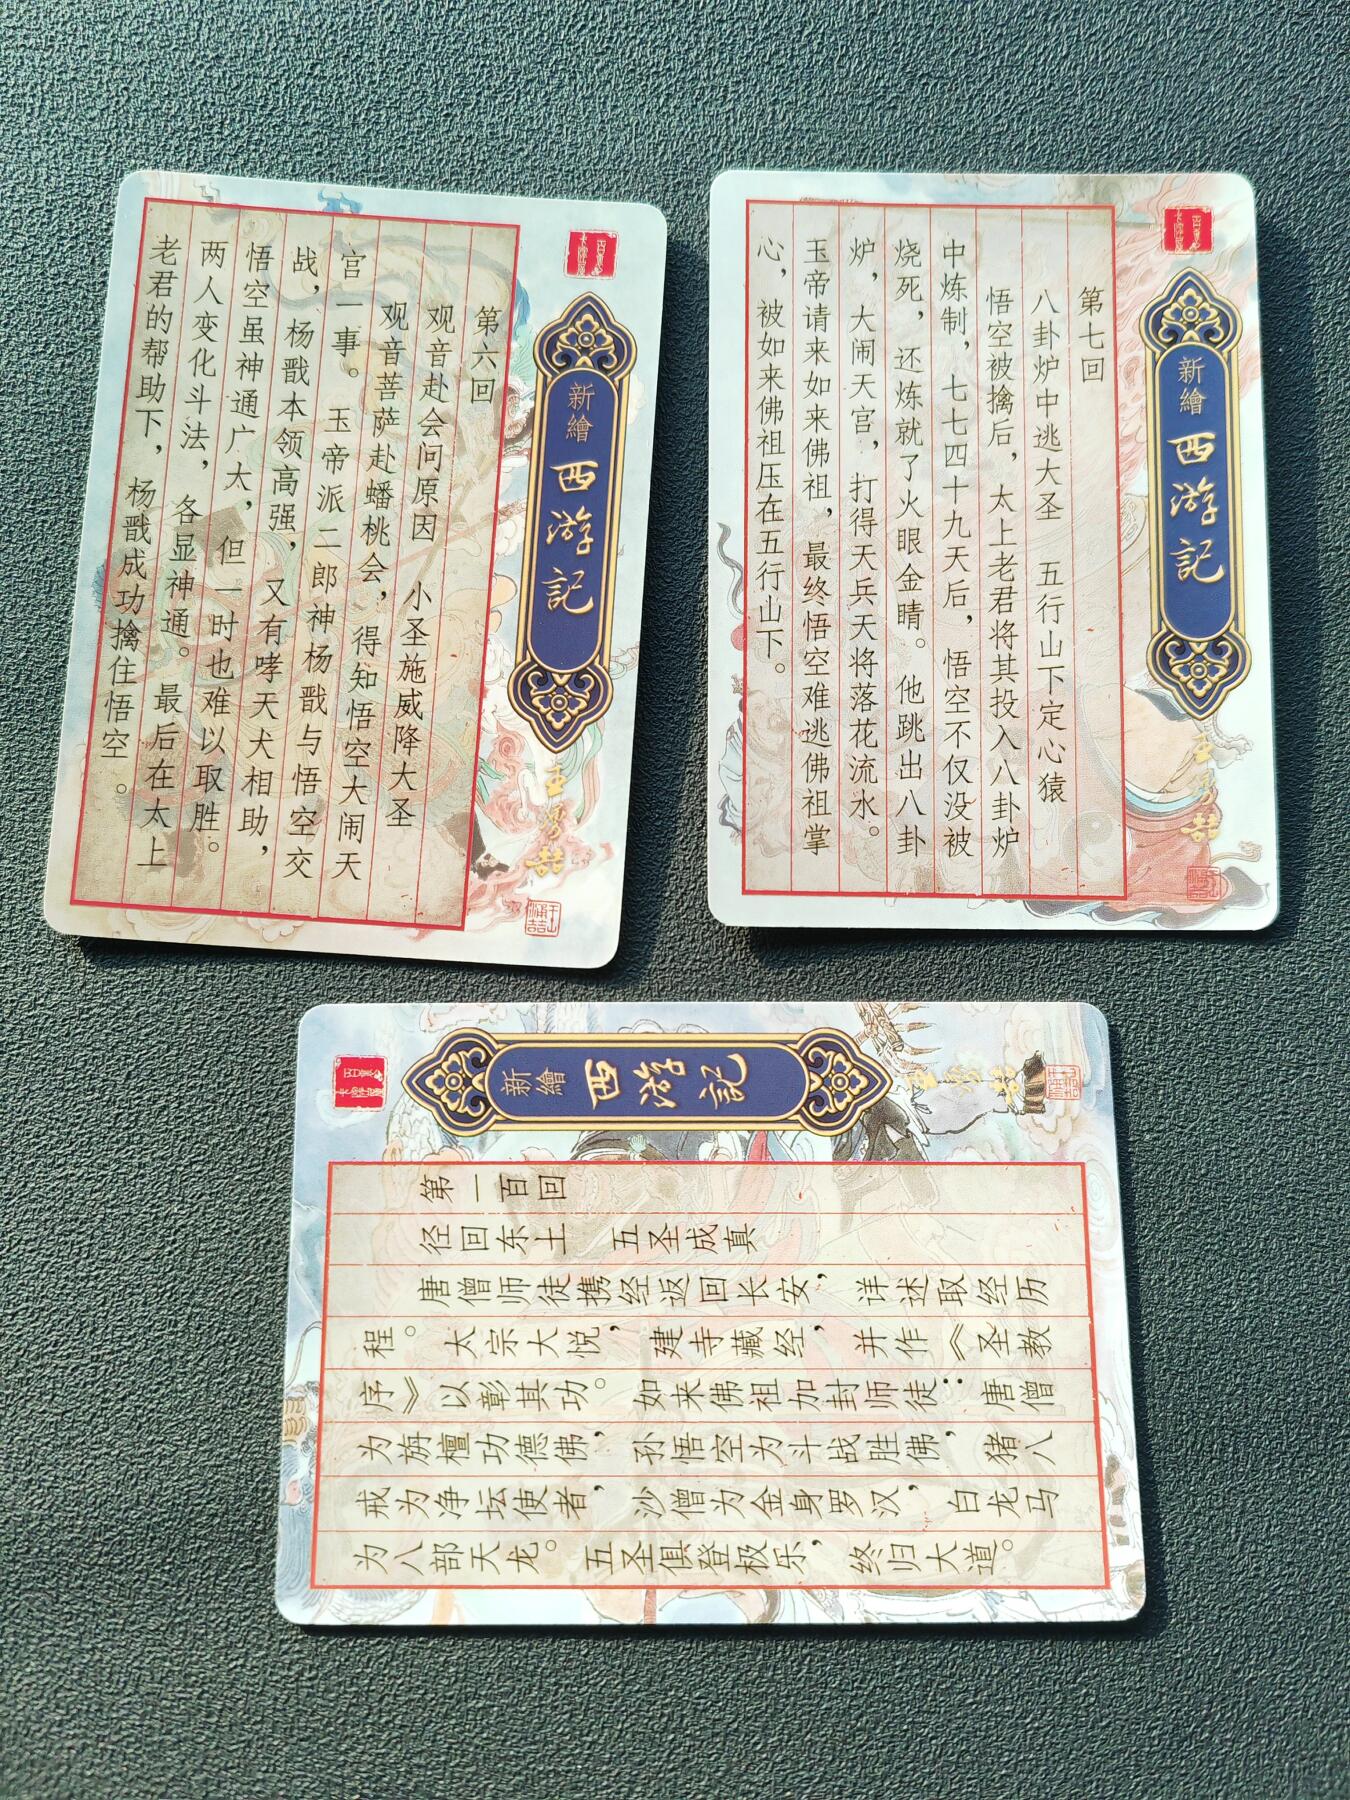 新繪
西游記
第六回
观音赴会问原因 小圣施威降大圣
观音菩萨赴蟠桃会，得知悟空大闹天
宫一事。玉帝派二郎神杨戬与悟空交
战，杨戬本领高强，又有哮天犬相助，
悟空虽神通广大，但一时也难以取胜。
两人变化斗法，各显神通。最后在太上
老君的帮助下，杨戬成功擒住悟空。
新繪
西游記
第七回
八卦炉中逃大圣 五行山下定心猿
悟空被擒后，太上老君将其投入八卦炉
中炼制，七七四十九天后，悟空不仅没被
烧死，还炼就了火眼金睛。他跳出八卦
炉，大闹天宫，打得天兵天将落花流水。
玉帝请来如来佛祖，最终悟空难逃佛祖掌
心，被如来佛祖压在五行山下。
新繪
西游記
第一百回
径回东土 五圣成真
唐僧师徒携经返回长安，详述取经历
程。太宗大悦，建寺藏经，并作《圣教
序》以彰其功。如来佛祖加封师徒：唐僧
为旃檀功德佛，孙悟空为斗战胜佛，猪八
戒为净坛使者，沙僧为金身罗汉，白龙马
为八部天龙。五圣俱登极乐，终归大道。